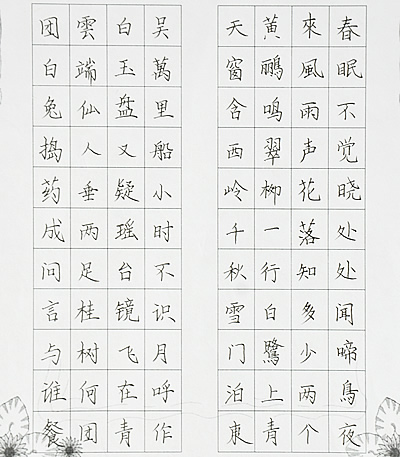 春眠不觉晓处处闻啼鳥夜
來風雨声花落知多少两个
黄鹂鸣翠柳一行白鷺上青
天窗含西岭千秋雪门泊東
吴萬里船小时不识月呼作
白玉盘又疑瑶台镜飞在青
雲端仙人垂两足桂树何团
团白兔捣药成问言与谁餐